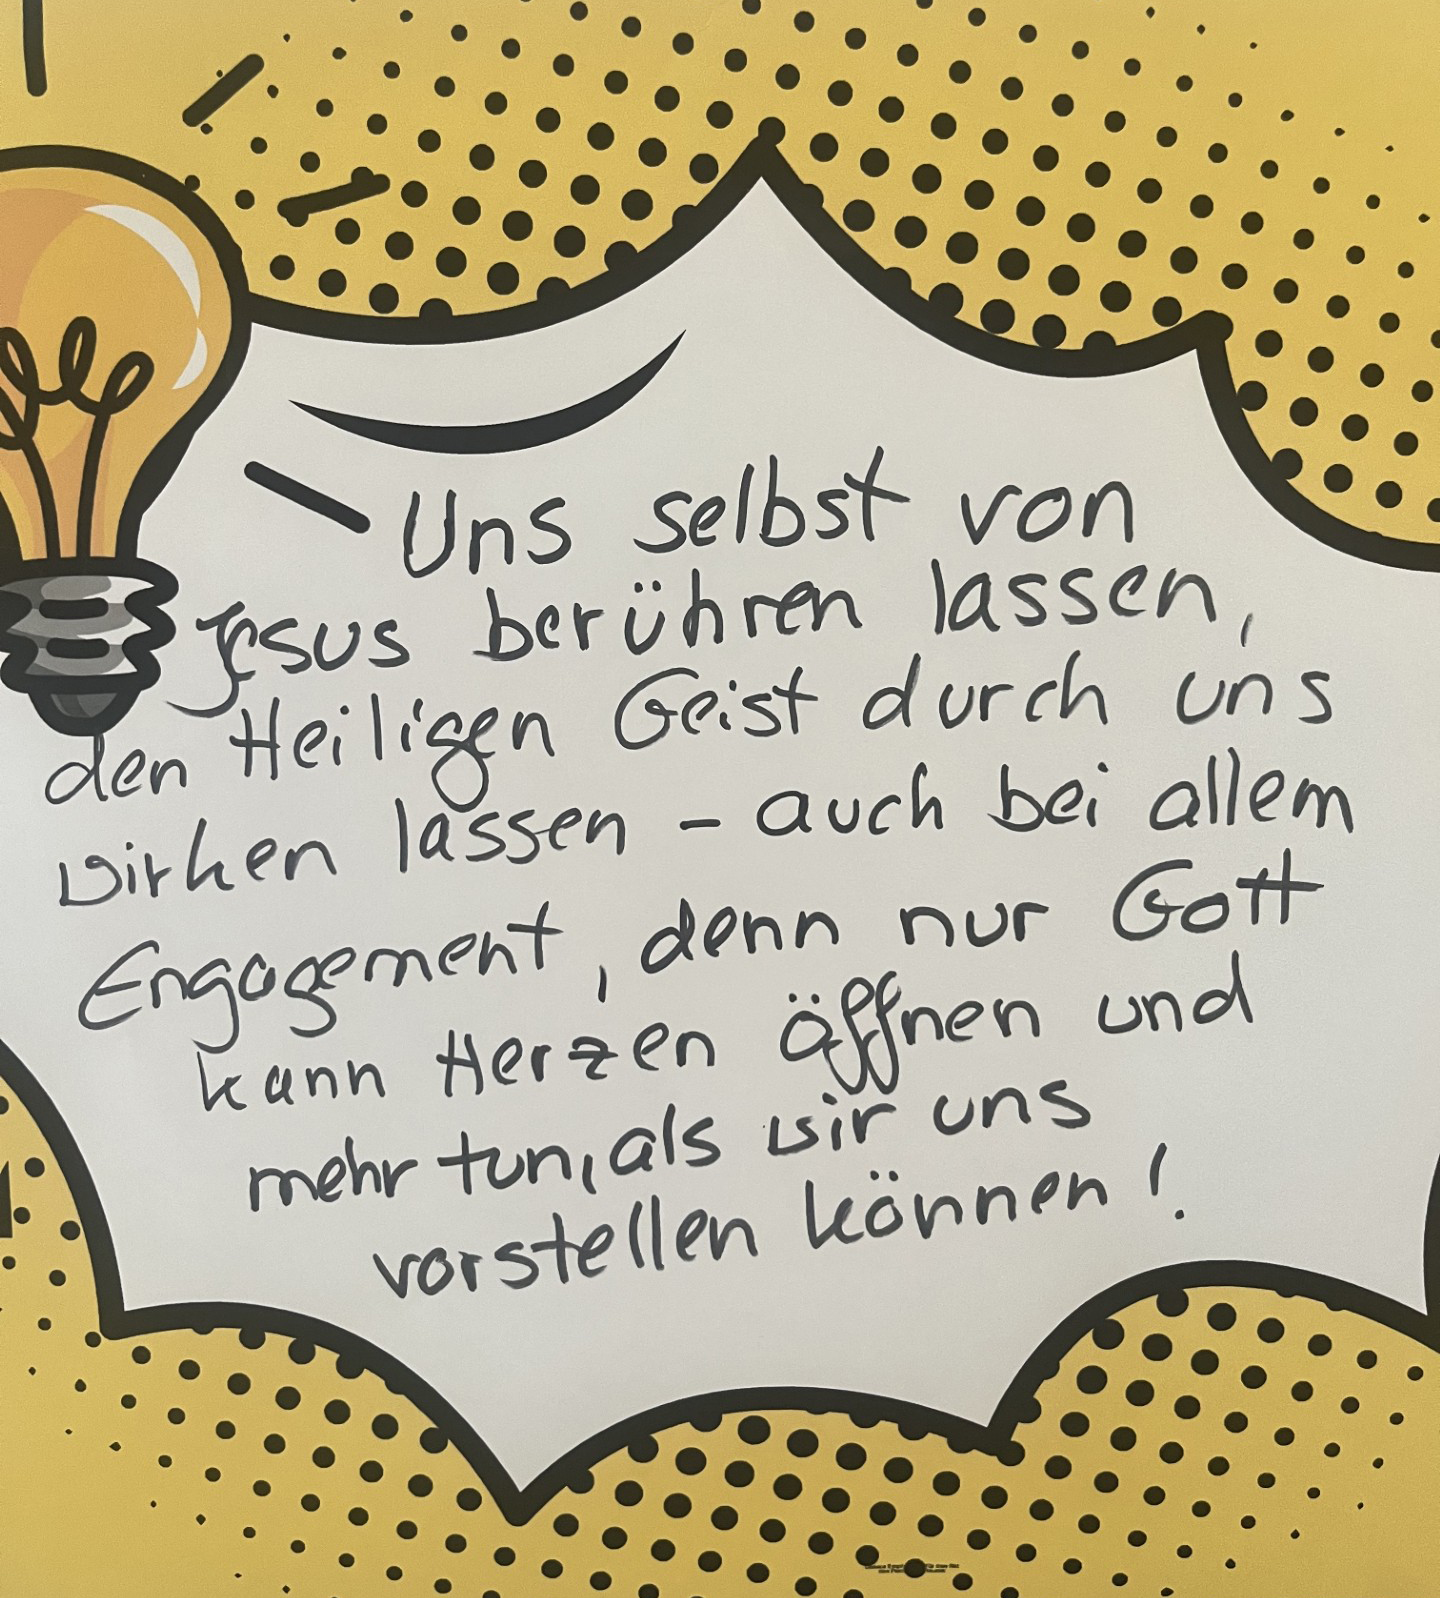 Uns selbst von
Jesus berühren lassen,
den Heiligen Geist durch uns
wirken lassen – auch bei allem
Engagement, denn nur Gott
kann Herzen öffnen und
mehr tun, als wir uns
vorstellen können!